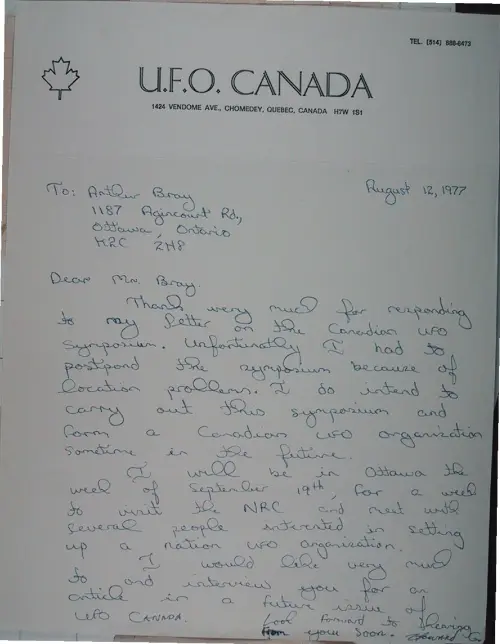 TEL. (514) 686-6473
U.F.O. CANADA
1424 VENDOME AVE., CHOMEDEY, QUEBEC, CANADA H7W 1S1
August 12, 1977
To: Arthur Bray
1187 Agincourt Rd.,
Ottawa, Ontario
K2C 2H8
Dear Mr. Bray.
Thank very much for responding
to my letter on the Canadian UFO
Symposium. Unfortunatly I had to
postpond the symposium because of
location problems. I do intend to
carry out this symposium and
form a Canadian UFO organization
sometime in the future.
I will be in Ottawa the
week of September 19th, for a week
to visit the NRC and meet with
several people interested in setting
up a nation UFO organization.
I would like very much
to and interview you for an
article in a future issue of
UFO CANADA. Look forward to hearing
from you soon.